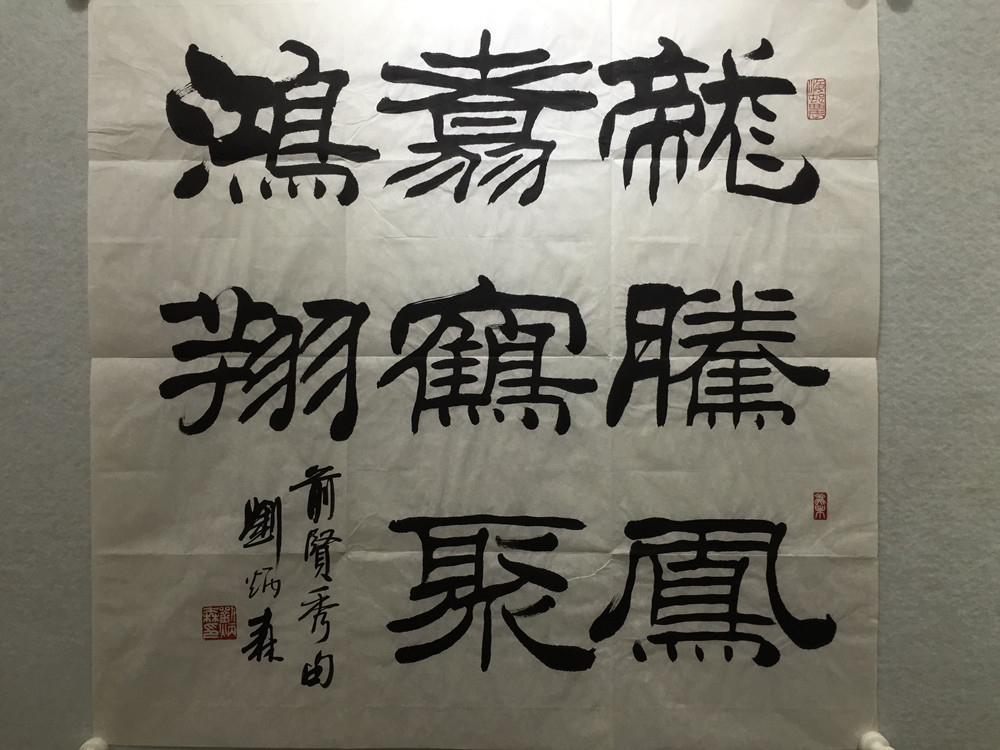 龍騰鳳
翥鶴聚
鴻翔
前賢秀句
劉炳森